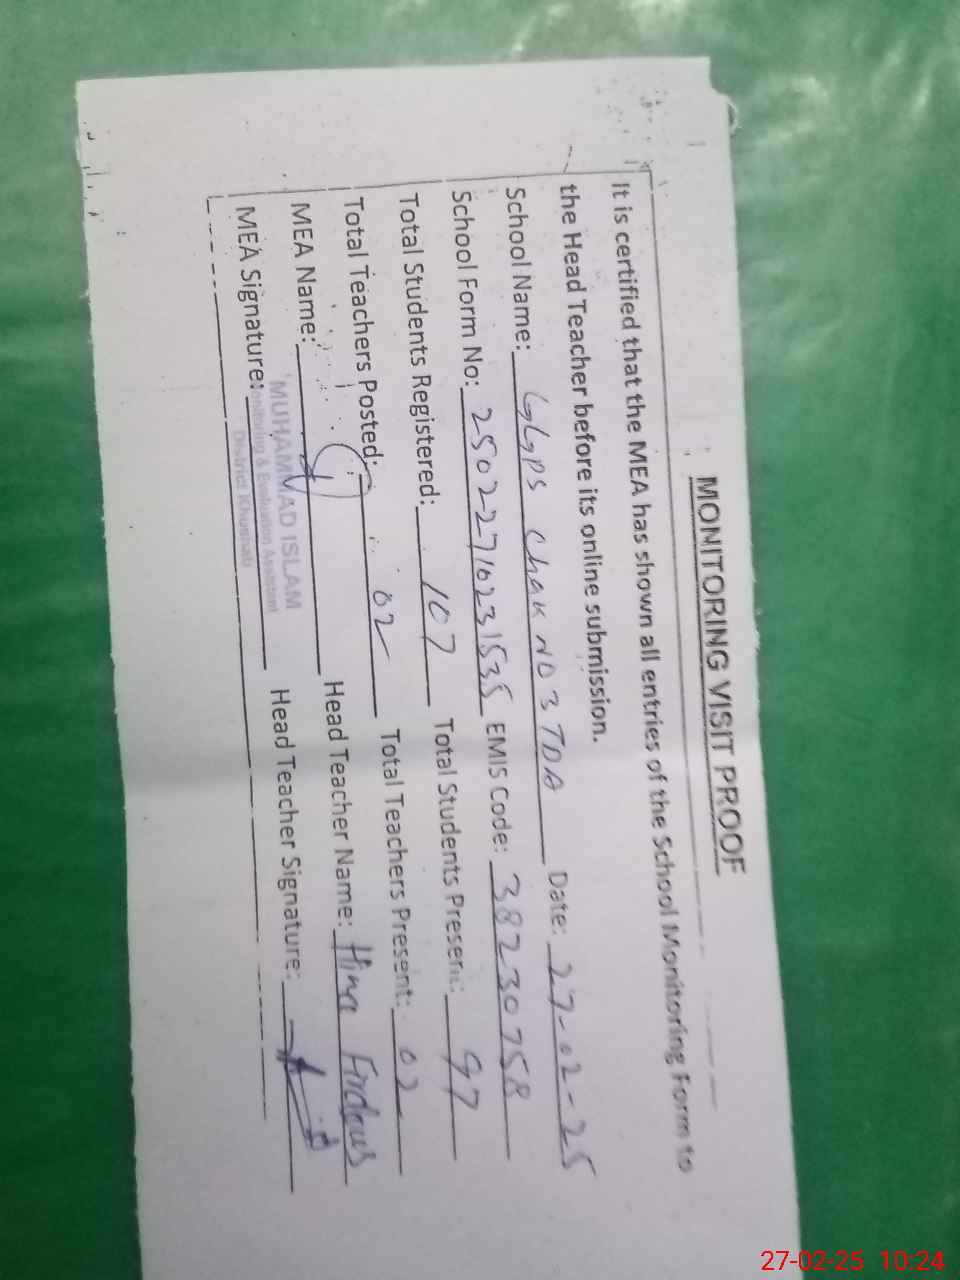 MONITORING VISIT PROOF
It is certified that the MEA has shown all entries of the School Monitoring Form to
the Head Teacher before its online submission.
School Name: GGPS Chak NO 3 TDA Date: 27-02-25
School Form No: 25022710231535 EMIS Code: 38230758
Total Students Registered: 107 Total Students Present: 97
Total Teachers Posted: 02 Total Teachers Present: 02
MEA Name: Head Teacher Name: Hina Firdous
MEA Signature: Head Teacher Signature:
MUHAMMAD ISLAM
Monitoring & Evaluation Assistant
District Khushab
27-02-25 10:24